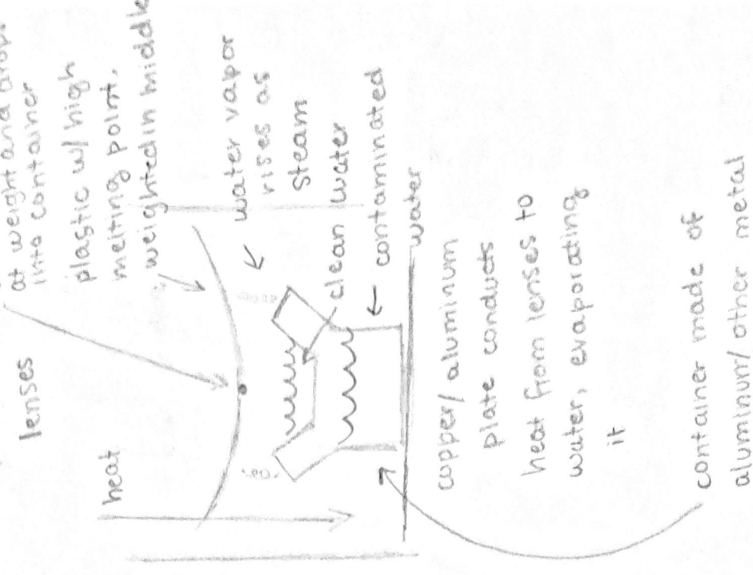 at weight and drops
into container
plastic w/ high
melting point.
weighted in middle
water vapor
rises as
steam
clean water
contaminated
water
lenses
heat
copper/aluminum
plate conducts
heat from lenses to
water, evaporating
it
container made of
aluminum/other metal